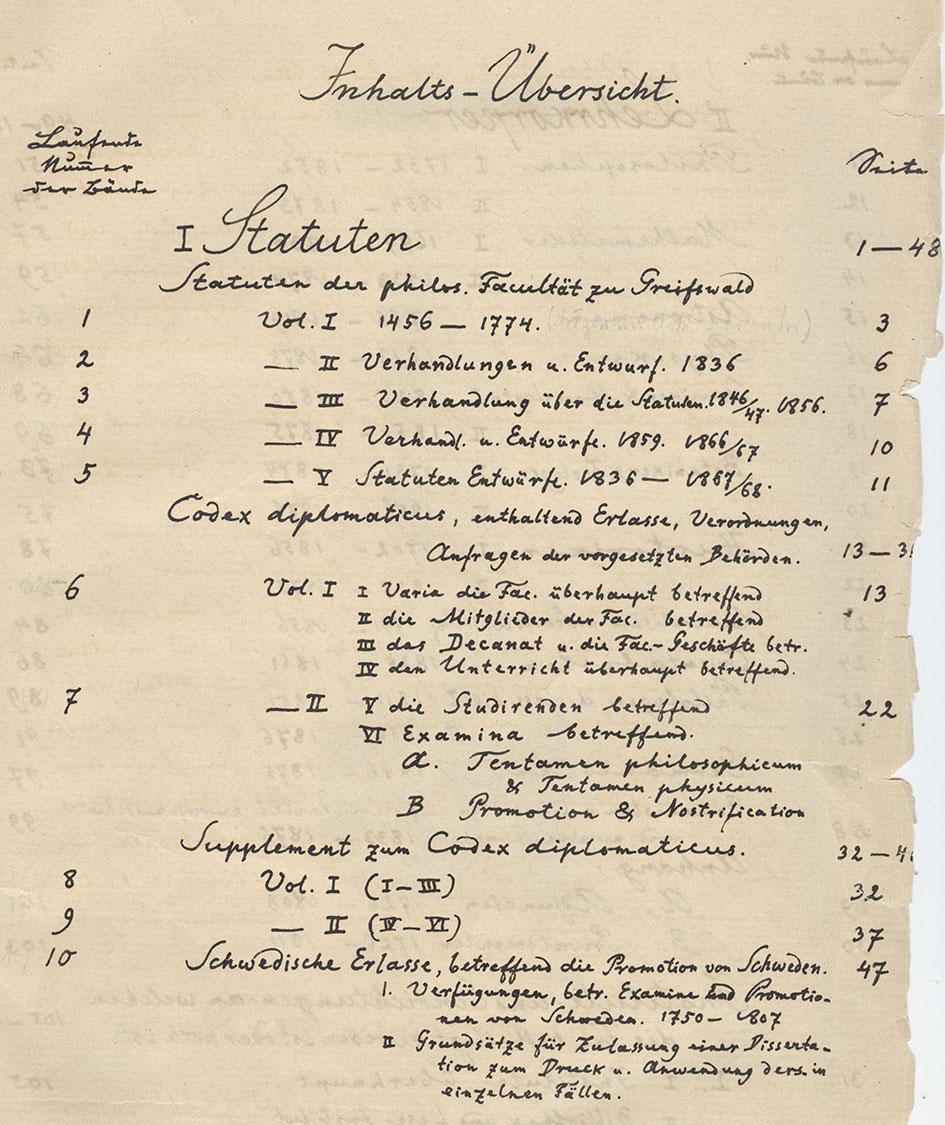 Inhalts-Übersicht.
Laufende
Num̅er
der Bände
Seite
I Statuten 1—48
Statuten der philos. Facultät zu Greifswald
1 Vol. I 1456 — 1774. 3
2 — II Verhandlungen u. Entwurf. 1836 6
3 — III Verhandlung über die Statuten. 1846/47. 1856. 7
4 — IV Verhandl. u. Entwürfe. 1859. 1866/67 10
5 — V Statuten Entwürfe. 1836 — 1867/68. 11
Codex diplomaticus, enthaltend Erlasse, Verordnungen,
Anfragen der vorgesetzten Behörden. 13—
6 Vol. I I Varia die Fac. überhaupt betreffend 13
II die Mitglieder der Fac. betreffend
III das Decanat u. die Fac.-Geschäfte betr.
IV den Unterricht überhaupt betreffend.
7 — II V die Studirenden betreffend 22
VI Examina betreffend.
A. Tentamen philosophicum
& Tentamen physicum
B Promotion & Nostrification
Supplement zum Codex diplomaticus. 32—
8 Vol. I (I–III) 32
9 — II (IV–VI) 37
10 Schwedische Erlasse, betreffend die Promotion von Schweden. 47
I. Verfügungen, betr. Examina und Promotio-
nen von Schweden. 1750 — 1807
II Grundsätze für Zulassung einer Disserta-
tion zum Druck u. Anwendung ders. in
einzelnen Fällen.